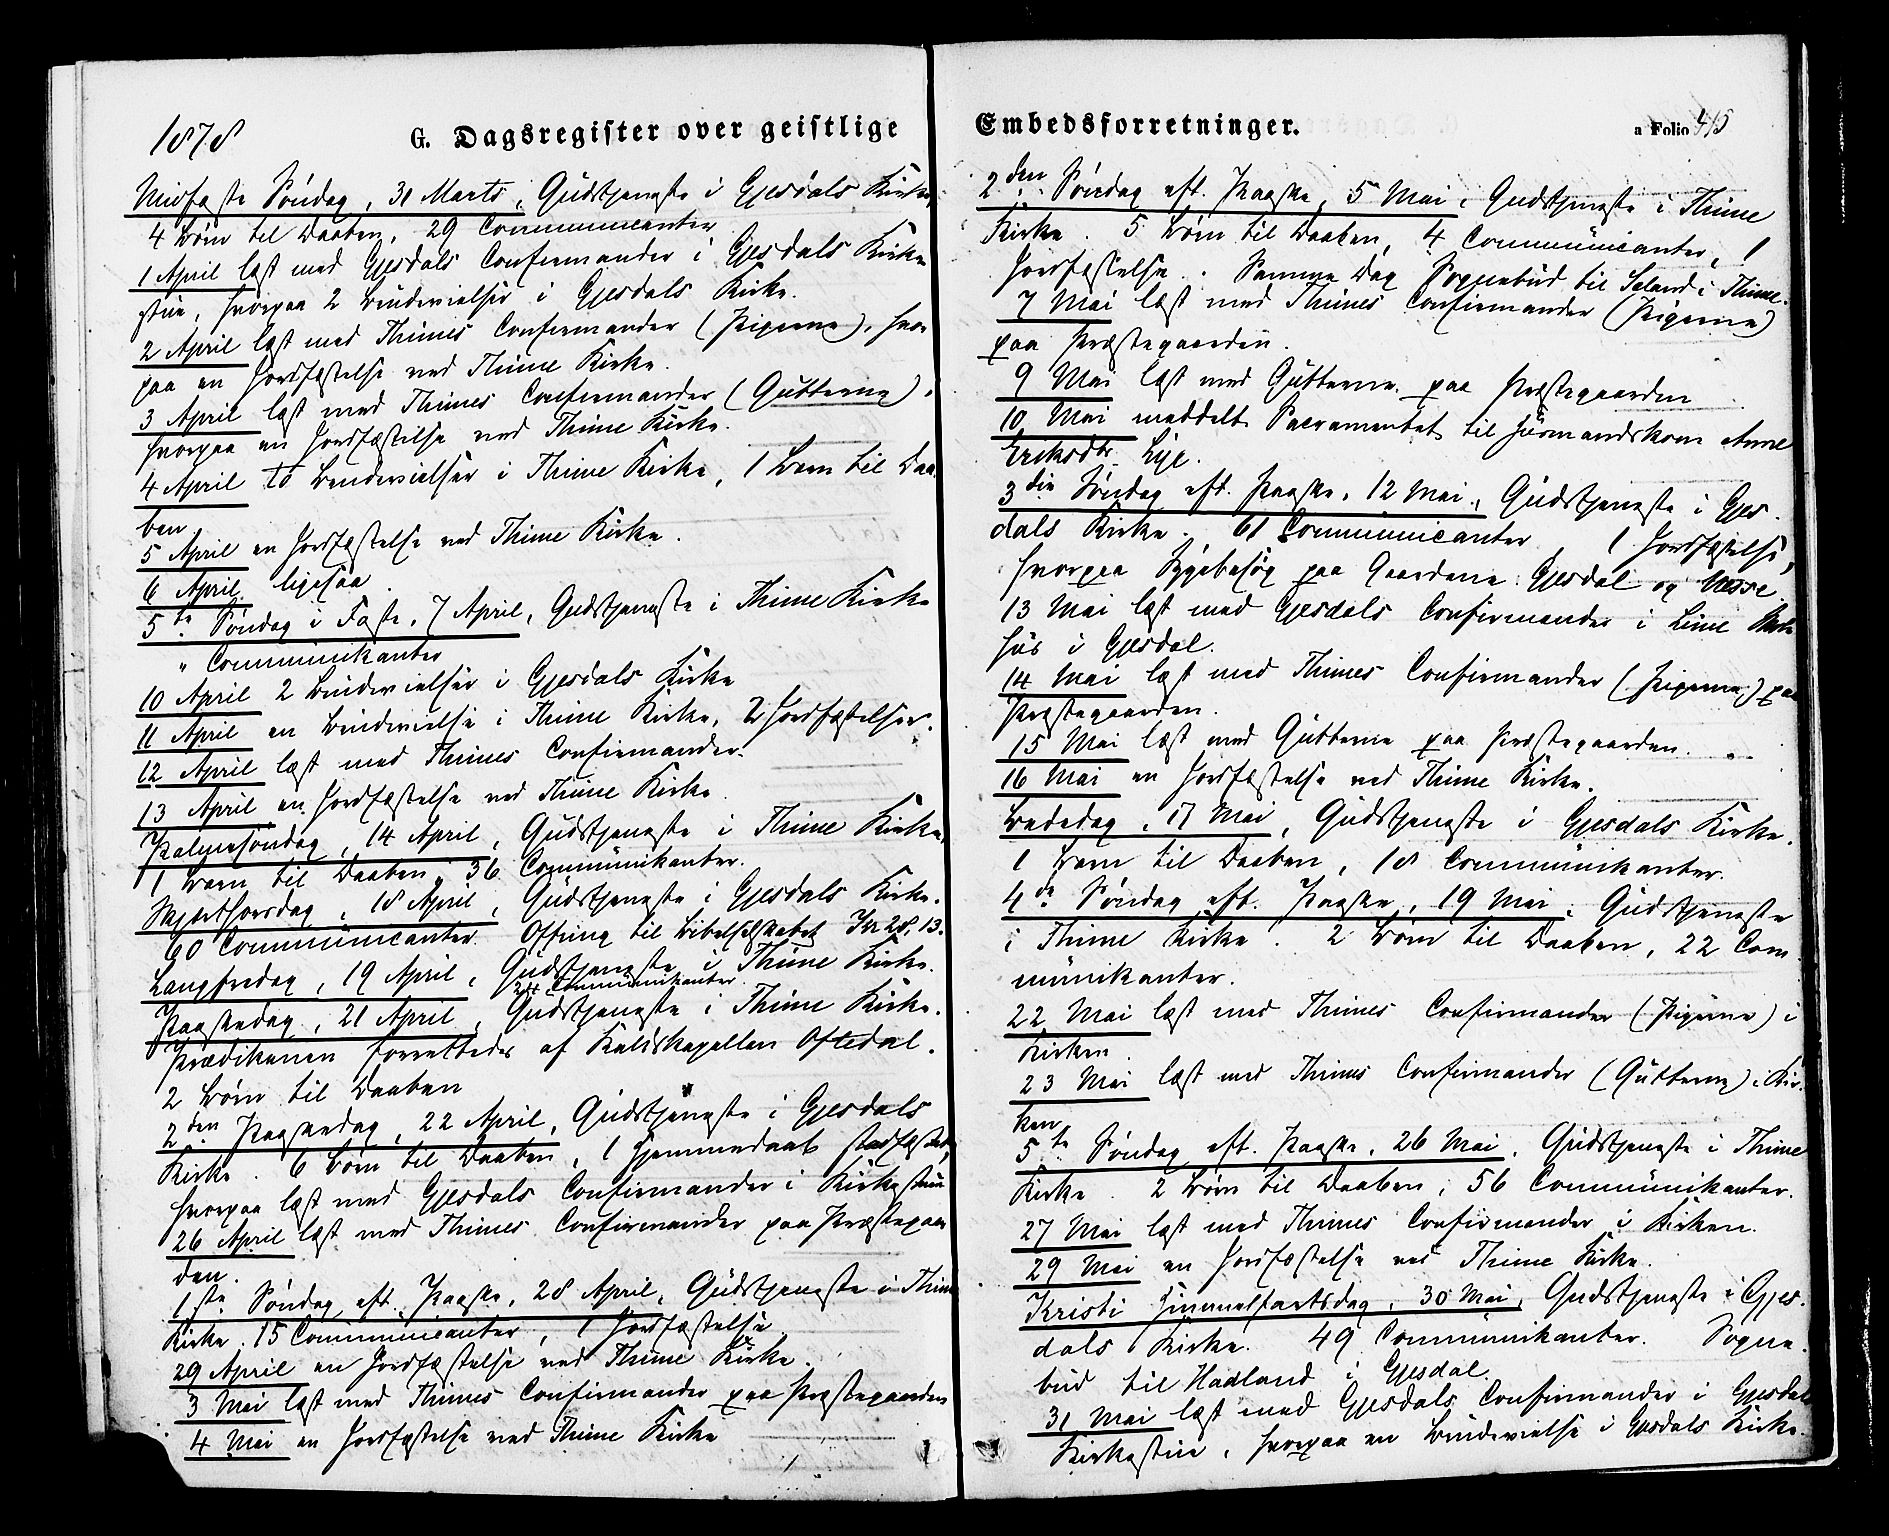 1878
G. Dagsregister over geistlige
Midfaste Söndag, 31 Marts, Gudstjeneste i Gjesdals Kirke,
4 Börn til Daaben, 29 Communicanter
1 April læst med Gjesdals Confirmander i Gjesdals Kirke
stue, hvorpaa 2 Brudevielser i Gjesdals Kirke.
2 April læst med Thimes Confirmander (Pigerne), hvor
paa en Jordfæstelse ved Thime Kirke.
3 April læst med Thimes Confirmander (Gutterne),
hvorpaa en Jordfæstelse ved Thime Kirke.
4 April to Brudevielser i Thime Kirke, 1 Barn til Daa
ben
5 April en Jordfæstelse ved Thime Kirke.
6 April ligesaa
5te Söndag i Faste, 7 April, Gudstjeneste i Thime Kirke
" Communikanter
10 April 2 Brudevielser i Gjesdals Kirke
11 April en Brudevielse i Thime Kirke, 2 Jordfæstelser.
12 April læst med Thimes Confirmander.
13 April en Jordfæstelse ved Thime Kirke.
Palmesöndag, 14 April, Gudstjeneste i Thime Kirke,
1 Barn til Daaben, 36 Communikanter.
Skjærthorsdag, 18 April, Gudstjeneste i Gjesdals Kirke.
60 Communicanter. Offring til Bibelselskabet Kr 28,13.
Langfredag, 19 April, Gudstjeneste i Thime Kirke.
24 Communikanter.
Paaskedag, 21 April, Gudstjeneste i Thime Kirke.
Prædikenen forrettedes af Kaldskapellan Oftedal.
2 Börn til Daaben
2den Paaskedag, 22 April, Gudstjeneste i Gjesdals
Kirke. 6 Börn til Daaben, 1 Hjemmedaab stadfæstet,
hvorpaa læst med Gjesdals Confirmander i Kirkestuen
26 April læst med Thimes Confirmander paa Præstegaar
den.
1ste Söndag eft. Paaske, 28 April, Gudstjeneste i Thime
Kirke. 15 Communicanter, 1 Jordfæstelse
29 April en Jordfæstelse ved Thime Kirke.
3 Mai læst med Thimes Confirmander paa Præstegaarden
4 Mai en Jordfæstelse ved Thime Kirke
Embedsforretninger.
a Folio 415
2den Söndag eft. Paaske, 5 Mai, Gudstjeneste i Thime
Kirke. 5 Börn til Daaben, 4 Communicanter, 1
Jordfæstelse. Samme Dag Sognebud til Seland i Thime.
7 Mai læst med Thimes Confirmander (Pigerne)
paa Præstegaarden.
9 Mai læst med Gutterne paa Præstegaarden
10 Mai meddelt Sacramentet til Huusmandskone Anne
Eriksdtr Lye.
3die Söndag eft. Paaske, 12 Mai, Gudstjeneste i Gjes
dals Kirke. 61 Communicanter, 1 Jordfæstelse,
hvorpaa Sygebesög paa Gaardene Gjesdal og Væsse.
13 Mai læst med Gjesdals Confirmander i Lime Skole
hus i Gjesdal.
14 Mai læst med Thimes Confirmander (Pigerne) paa
Præstegaarden.
15 Mai læst med Gutterne paa Præstegaarden.
16 Mai en Jordfæstelse ved Thime Kirke.
Bededag, 17 Mai, Gudstjeneste i Gjesdals Kirke.
1 Barn til Daaben, 18 Communikanter.
4de Söndag eft. Paaske, 19 Mai, Gudstjeneste
i Thime Kirke. 2 Börn til Daaben, 22 Com
munikanter.
22 Mai læst med Thimes Confirmander (Pigerne) i
Kirken.
23 Mai læst med Thimes Confirmander (Gutterne) i Kir
ken
5te Söndag eft. Paaske, 26 Mai, Gudstjeneste i Thime
Kirke. 2 Börn til Daaben, 56 Communikanter.
27 Mai læst med Thimes Confirmander i Kirken.
29 Mai en Jordfæstelse ved Thime Kirke.
Kristi Himmelfartsdag, 30 Mai, Gudstjeneste i Gjes
dals Kirke. 49 Communikanter. Sogne
bud til Hadland i Gjesdal.
31 Mai læst med Gjesdals Confirmander i Gjesdals
Kirkestue, hvorpaa en Brudevielse i Gjesdals Kirke.